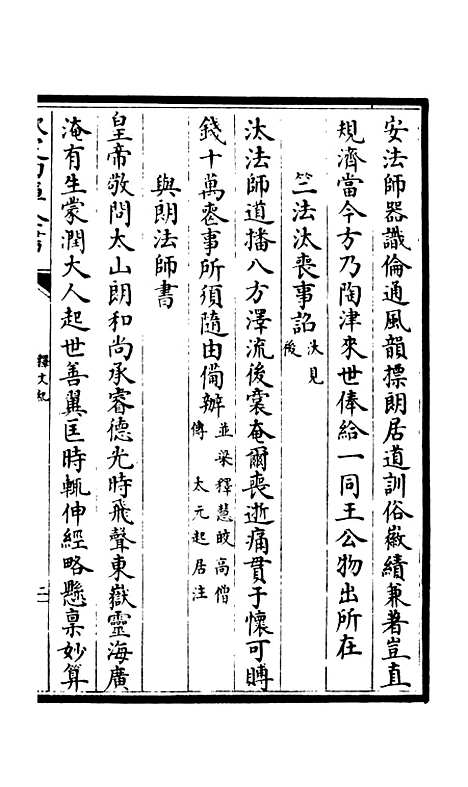 安法師器識倫通風韻標朗居道訓俗徽績兼著豈直
規濟當今方乃陶津來世俸給一同王公物出所在
竺法汰喪事詔汰見後
汰法師道播八方澤流後裔奄爾喪逝痛貫于懷可賻
錢十萬喪事所須隨由備辦並梁釋慧皎高僧傳 太元起居注
與朗法師書
皇帝敬問太山朗和尚承睿德光時飛聲東嶽靈海廣
淹有生蒙潤大人起世善翼匡時輒伸經略懸稟妙算
釋文紀
二